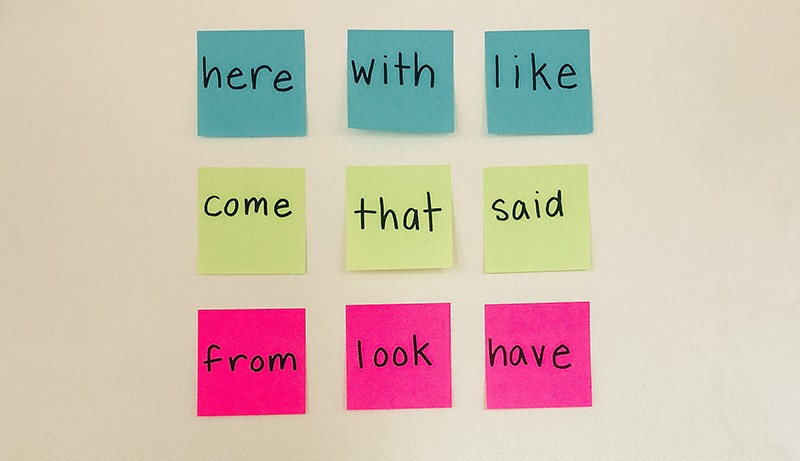 here with like
come that said
from look have